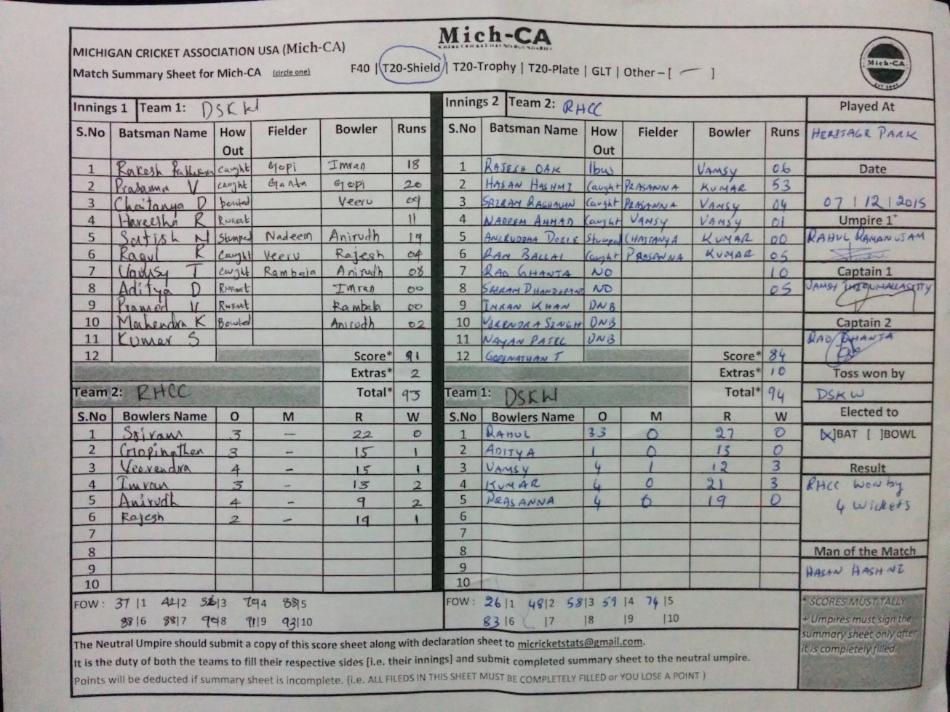 Mich-CA
MICHIGAN CRICKET ASSOCIATION USA (Mich-CA)
Match Summary Sheet for Mich-CA (circle one) F40 | T20-Shield | T20-Trophy | T20-Plate | GLT | Other – [ — ]
Mich-CA
Innings 1 Team 1: DSKW
S.No Batsman Name How Out Fielder Bowler Runs
1 Rakesh caught Gopi Imran 18
2 Prasanna V caught Ganta Gopi 20
3 Chaitanya D bowled Veeru 09
4 Hareesha R Runout 11
5 Satish N Stumped Nadeem Anirudh 19
6 Raoul K Caught Veeru Rajesh 04
7 Vamsy T Caught Rambala Anirudh 08
8 Aditya D Runout Imran 00
9 Pramod V Runout Rambala 00
10 Mahendra K Bowled Anirudh 02
11 Kumar S
12 Score* 91
Extras* 2
Team 2: RHCC Total* 93
S.No Bowlers Name O M R W
1 Sriram 3 – 22 0
2 Gopinathan 3 – 15 1
3 Veerendra 4 – 15 1
4 Imran 3 – 13 2
5 Anirudh 4 – 9 2
6 Rajesh 2 – 19 1
7
8
9
10
FOW : 37 |1 42|2 |3 79|4 88|5
88|6 88|7 |8 91|9 93|10
Innings 2 Team 2: RHCC
S.No Batsman Name How Out Fielder Bowler Runs
1 RAJESH OAK lbw VAMSY 06
2 HASAN HASHMI Caught PRASANNA KUMAR 53
3 SRIRAM RAGHAVAN Caught PRASANNA VAMSY 04
4 NADEEM AHMAD Caught VAMSY VAMSY 01
5 ANIRUDDHA DOBLE Stumped CHAITANYA KUMAR 00
6 RAM BALLAI Caught PRASANNA KUMAR 05
7 RAO GHANTA NO 10
8 NO 05
9 IMRAN KHAN DNB
10 VIRENDRA SINGH DNB
11 NAYAN PATEL DNB
12 GOPINATHAN T Score* 84
Extras* 10
Team 1: DSKW Total* 94
S.No Bowlers Name O M R W
1 RAHUL 3.3 0 27 0
2 ADITYA 1 0 13 0
3 VAMSY 4 1 12 3
4 KUMAR 4 0 21 3
5 PRASANNA 4 0 19 0
6
7
8
9
10
FOW : 26|1 48|2 58|3 59 |4 74 |5
83|6 |7 |8 |9 |10
Played At
HERITAGE PARK
Date
07/12/2015
Umpire 1*
RAHUL RAMANUJAM
Captain 1
VAMSY
Captain 2
RAO GHANTA
Toss won by
DSKW
Elected to
[X]BAT [ ]BOWL
Result
RHCC WON by
4 Wickets
Man of the Match
HASAN HASHMI
* SCORES MUST TALLY
+ Umpires must sign the
summary sheet only after
it is completely filled.
The Neutral Umpire should submit a copy of this score sheet along with declaration sheet to micricketstats@gmail.com.
It is the duty of both the teams to fill their respective sides [i.e. their innings] and submit completed summary sheet to the neutral umpire.
Points will be deducted if summary sheet is incomplete. (i.e. ALL FILEDS IN THIS SHEET MUST BE COMPLETELY FILLED or YOU LOSE A POINT )